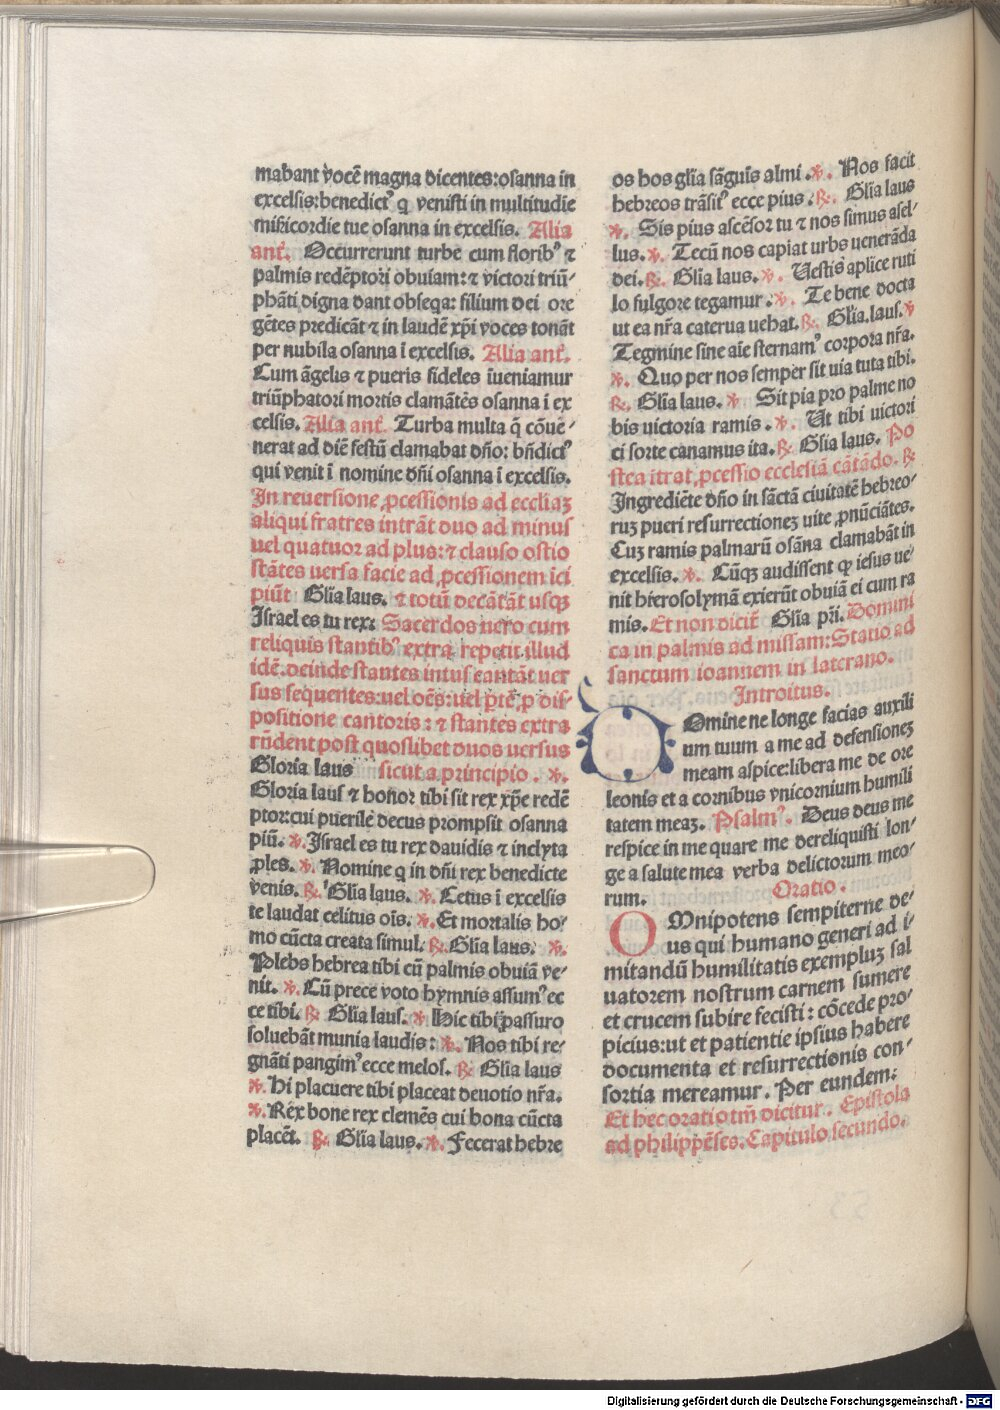 mabant vocē magna dicentes: osanna in
excelsis: benedictꝰ q̇ venisti in multitudie
misẽicordie tue osanna in excelsis. Alia
ant̃. Occurrerunt turbe cum floribꝰ ⁊
palmis redēptori obuiam: ⁊ victori triū-
phāti digna dant obseq̃a: filium dei ore
gētes predicāt ⁊ in laudē xp̄i voces tonāt
per nubila osanna ī excelsis. Alia ant̃.
Cum āgelis ⁊ pueris fideles īueniamur
triūphatori mortis clamātēs osanna ī ex
celsis. Alia ant̃. Turba multa q̄ cōuē-
nerat ad diē festū clamabat dño: bñdictꝰ
qui venit ī nomine dñi osanna ī excelsis.
In reuersione ꝓcessionis ad eccliaꝫ
aliqui fratres intrāt duo ad minus
uel quatuor ad plus: ⁊ clauso ostio
stātes uersa facie ad ꝓcessionem ici
piūt Glīa laus. ⁊ totū decātāt usqꝫ
Israel es tu rex: Sacerdos uero cum
reliquis stantibꝰ extra repetit illud
idē. deinde stantes intus cantāt uer
sus sequentes: uel oēs: uel ꝑtē, ꝓ dis
positione cantoris: ⁊ stantes extra
rn̄dent post quoslibet duos uersus
Gloria laus sicut a principio. ℣.
Gloria laus ⁊ honor tibi sit rex xp̄e redē
ptor: cui puerile decus prompsit osanna
piū. ℣. Israel es tu rex dauidis ⁊ inclyta
ꝓles. ℣. Nomine q̇ in dñi rex benedicte
venis. ℟. Glīa laus. ℣. Cetus ī excelsis
te laudat celitus oīs. ℣. Et mortalis ho-
mo cūcta creata simul. ℟. Glīa laus. ℣.
Plebs hebrea tibi cū palmis obuiā ve-
nit. ℣. Cū prece voto hymnis assumꝰ ec
ce tibi. ℟. Glīa laus. ℣. Hic tibi passuro
soluebāt munia laudis: ℣. Nos tibi re-
gnāti pangimꝰ ecce melos. ℟. Glīa laus
℣. Hi placuere tibi placeat deuotio nr̄a.
℣. Rex bone rex clemēs cui bona cūcta
placēt. ℟. Glīa laus. ℣. Fecerat hebre
os hos glīa sāguis almi. ℣. Nos facit
hebreos trāsitꝰ ecce pius. ℟. Glīa laus
℣. Sis pius ascēsor tu ⁊ nos simus asel-
lus. ℣. Tecū nos capiat urbs uenerāda
dei. ℟. Glīa laus. ℣. Uestis aplice ruti
lo fulgore tegamur. ℣. Te bene docta
ut ea nr̄a caterua uehat. ℟. Glīa. laus. ℣
Tegmine sine aīe sternamꝰ corpora nr̄a.
℣. Quo per nos semper sit uia tuta tibi.
℟. Glīa laus. ℣ Sit pia pro palme no
bis uictoria ramis. ℣. Ut tibi uictori
ci sorte canamus ita. ℟ Glīa laus. Po
stea itrat ꝓcessio ecclesiā cātādo. ℟
Ingrediēte dño in sāctā ciuitatē hebreo-
ruꝫ pueri resurrectioneꝫ uite ꝓnūciātes.
Cuꝫ ramis palmarū osāna clamabāt in
excelsis. ℣. Cūqꝫ audissent qꝫ iesus ue-
nit hierosolymā exierūt obuiā ei cum ra
mis. Et non dicit̃ Glīa pr̄i. Domini
ca in palmis ad missam: Statio ad
sanctum ioannem in laterano.
Introitus.
Domine ne longe facias auxili
um tuum a me ad defensioneꝫ
meam aspice: libera me de ore
leonis et a cornibus vnicornium humili
tatem meaꝫ. Psalmꝰ. Deus deus me
respice in me quare me dereliquisti lon-
ge a salute mea verba delictorum meo-
rum. Oratio.
OMnipotens sempiterne de-
us qui humano generi ad i-
mitandū humilitatis exempluꝫ sal
uatorem nostrum carnem sumere
et crucem subire fecisti: cōcede pro-
picius: ut et patientie ipsius habere
documenta et resurrectionis con-
sortia mereamur. Per eundem:
Et hec oratio tm̄ dicitur. Epistola
ad philippēses. Capitulo secundo.
Digitalisierung gefördert durch die Deutsche Forschungsgemeinschaft - DFG